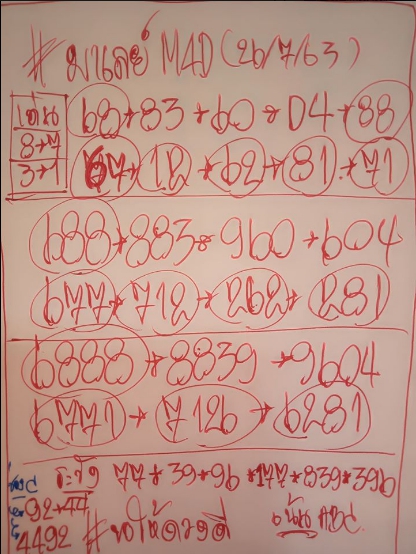 # มาเลย์ M4D (26/7/63)
เด่น 68*83*60*04*88
8*7 67*12*62*81*71
3*1
688*883*960*604
677*712*262*281
6888*8839*9604
6771*7126*6281
ระวัง 77*39*96*177*839*396
92*44
4492 #ขอให้โชคดี เน้น ABC